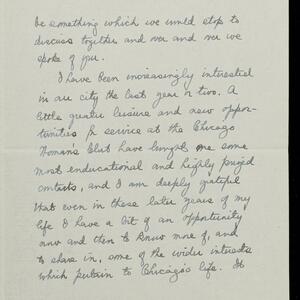 be something which we would stop to
discuss together and over and over we
spoke of you.
I have been increasingly interested
in our city the last year or two. A
little greater leisure and new oppor-
tunities for service at the Chicago
Woman's Club have brought me some
most educational and highly prized
contacts, and I am deeply grateful
that even in these later years of my
life I have a bit of an opportunity
now and then to know more of, and
to share in, some of the wider interests
which pertain to Chicago's life. It